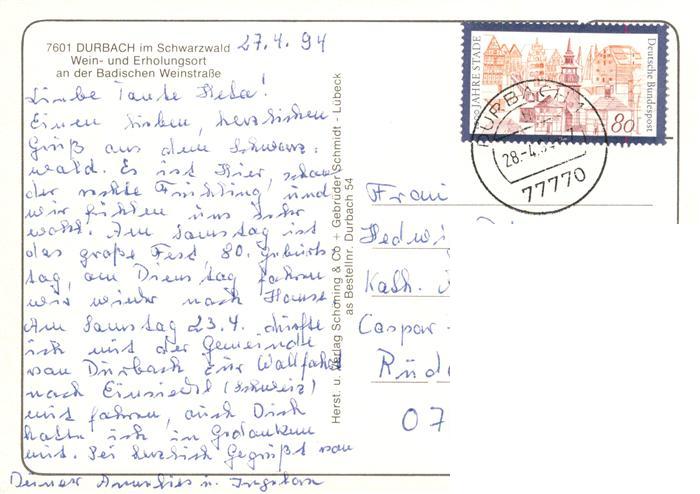 7601 DURBACH im Schwarzwald
Wein- und Erholungsort
an der Badischen Weinstraße
27.4.94
Liebe Tante Heda!
Einen lieben, herzlichen
Gruß aus dem Schwarz-
wald. Es ist hier, schon
der rechte Frühling und
wir fühlen uns sehr
wohl. Am Samstag ist
das große Fest, 80. Geburts
tag, am Dienstag fahren
wir wieder nach Hause
Am Samstag 23.4. durfte
ich mit der Gemeinde
von Durbach zur Wallfahrt
nach Einsiedl (Schweiz)
mit fahren, auch Dich
hatte ich in Gedanken
mit. Sei herzlich Gegrüßt von
Deiner Annelies u. Ingeborg
Herst. u. Verlag Schöning & Co + Gebrüder Schmidt - Lübeck
as Bestellnr. Durbach 54
JAHRE STADE
Deutsche Bundespost
80
DURBACH 1
28.-4.
77770
Frau
Hedwi
Kath.
Caspar-
Rüd
07